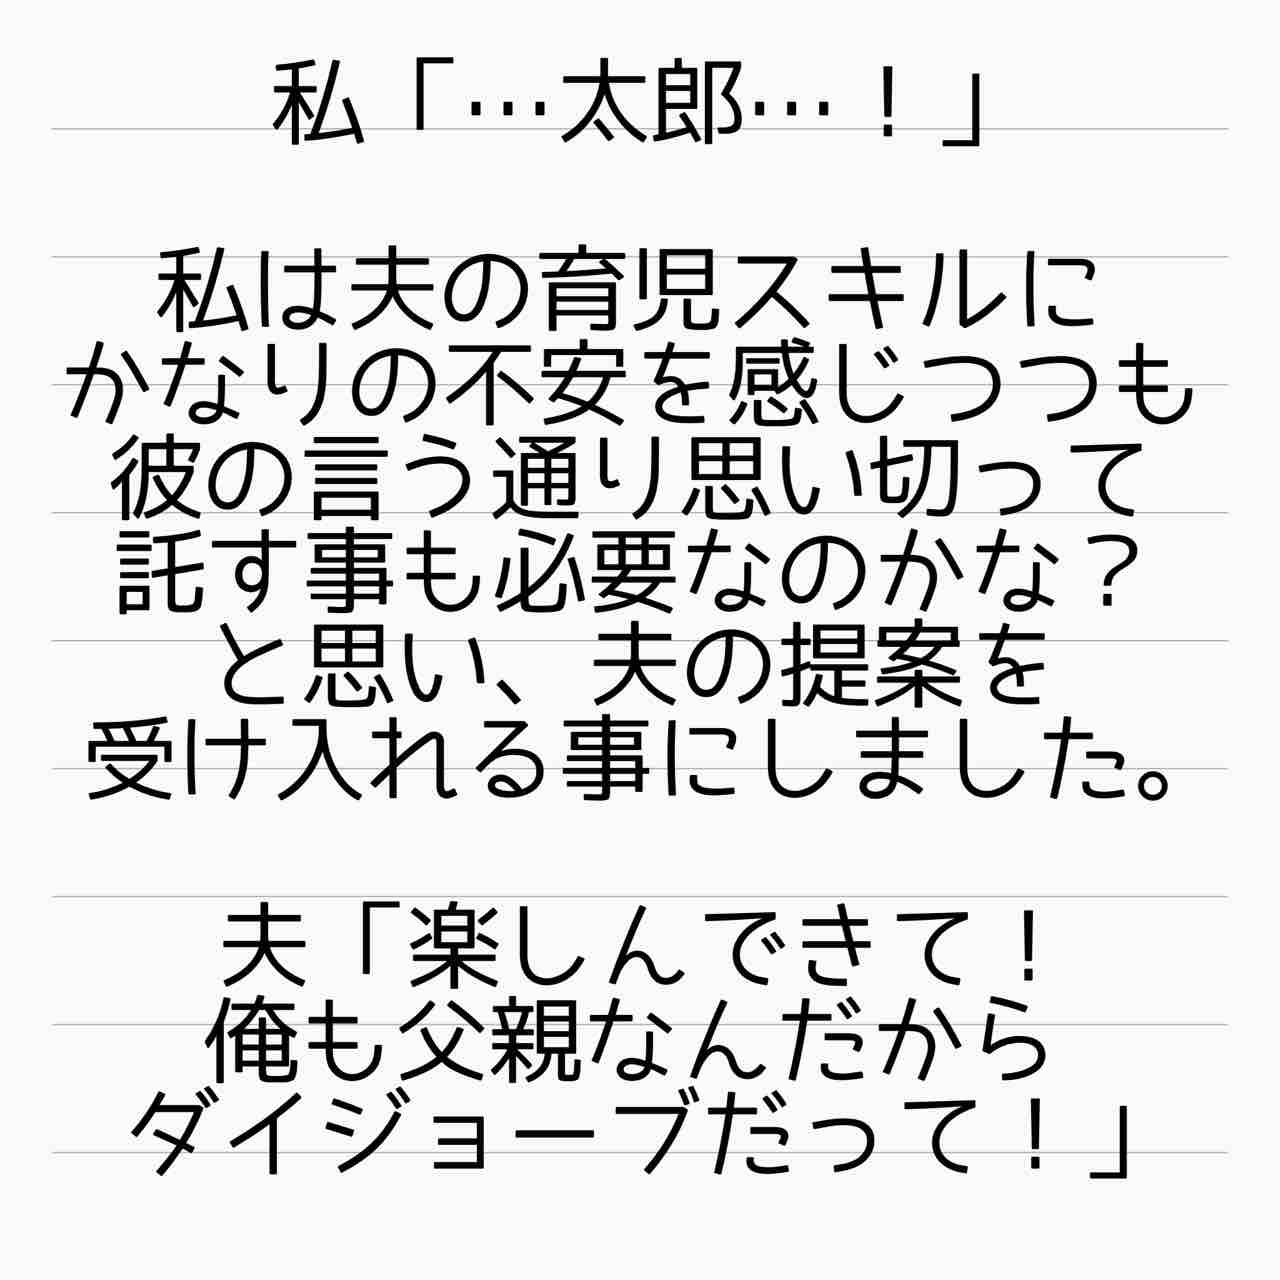 私「…太郎…！」
私は夫の育児スキルに
かなりの不安を感じつつも
彼の言う通り思い切って
託す事も必要なのかな？
と思い、夫の提案を
受け入れる事にしました。
夫「楽しんできて！
俺も父親なんだから
ダイジョーブだって！」